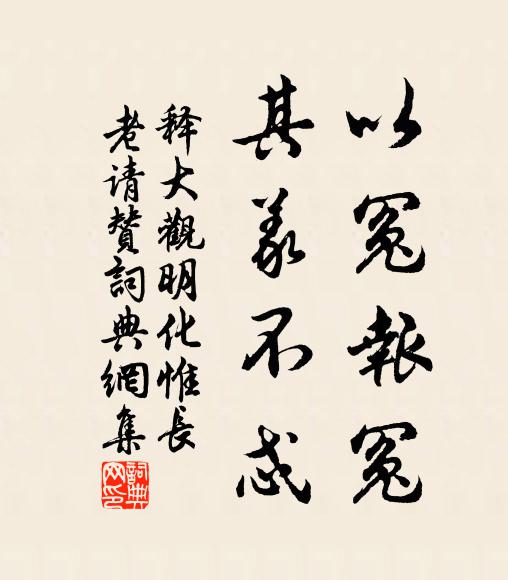 以冤報冤
其義不忒
释大觀明化惟長
老请贊詞典網集
詞典网印